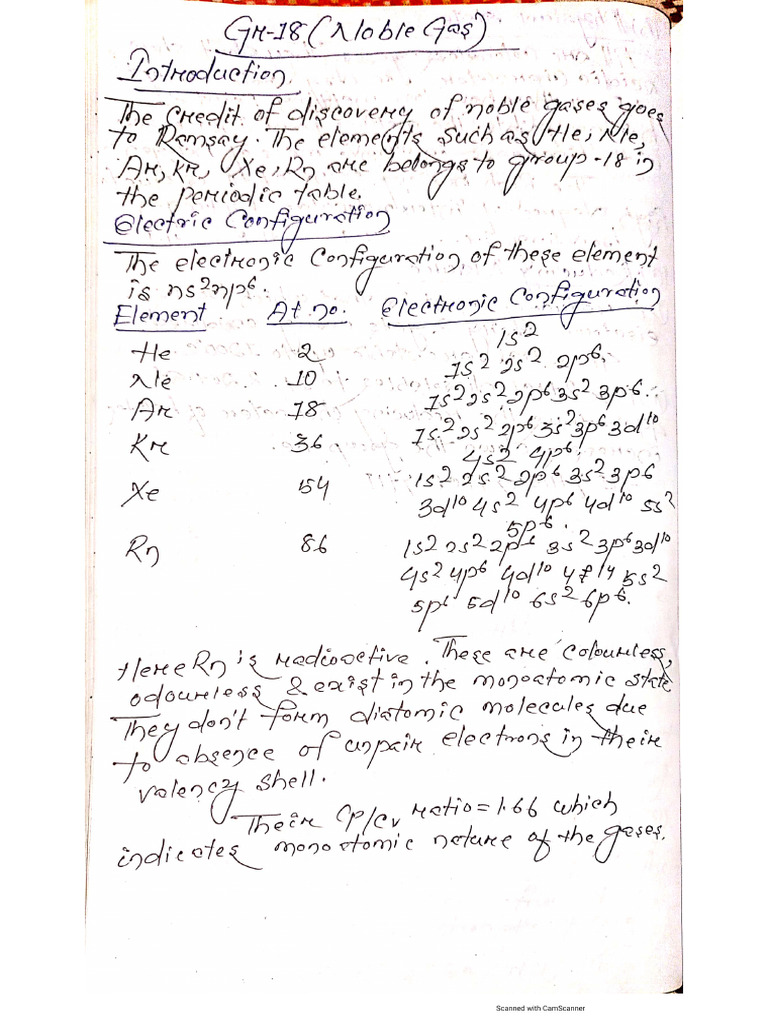 Gr-18 (Noble Gas)
Introduction
The credit of discovery of noble gases goes
to Ramsay. The elements such as He, Ne,
Ar, Kr, Xe, Rn are belongs to group-18 in
the periodic table.
Electric Configuration
The electronic configuration of these element
is ns²np⁶.
Element At no. Electronic Configuration
He 2 1s²
Ne 10 1s² 2s² 2p⁶.
Ar 18 1s² 2s² 2p⁶ 3s² 3p⁶.
Kr 36 1s² 2s² 2p⁶ 3s² 3p⁶ 3d¹⁰
4s² 4p⁶.
Xe 54 1s² 2s² 2p⁶ 3s² 3p⁶
3d¹⁰ 4s² 4p⁶ 4d¹⁰ 5s²
5p⁶.
Rn 86 1s² 2s² 2p⁶ 3s² 3p⁶ 3d¹⁰
4s² 4p⁶ 4d¹⁰ 4f¹⁴ 5s²
5p⁶ 5d¹⁰ 6s² 6p⁶.
Here Rn is radioactive. These are colourless,
odourless & exist in the monoatomic state.
They don't form diatomic molecules due
to absence of unpair electrons in their
valency shell.
Their Cp/Cv ratio = 1.66 which
indicates monoatomic nature of the gases.
Scanned with CamScanner